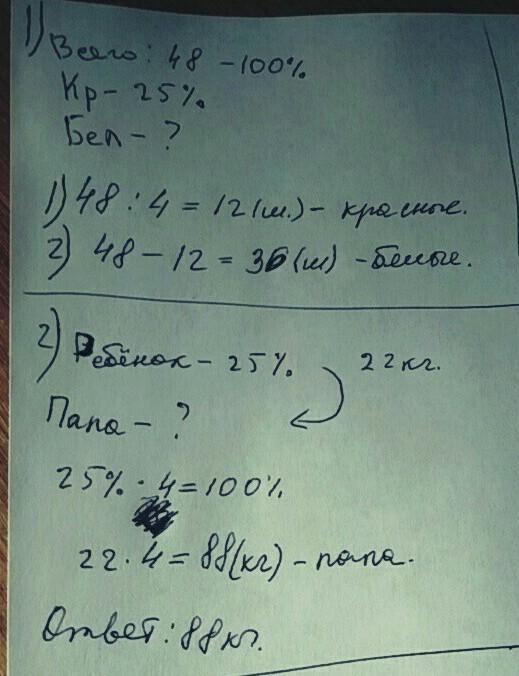 1) Всего: 48 - 100%
Кр - 25%
Бел - ?
1) 48 : 4 = 12 (ш.) - красные.
2) 48 - 12 = 36 (ш) - белые.
2) Ребёнок - 25%. 22 кг.
Папа - ?
25% · 4 = 100%
22 · 4 = 88 (кг) - папа.
Ответ: 88 кг.